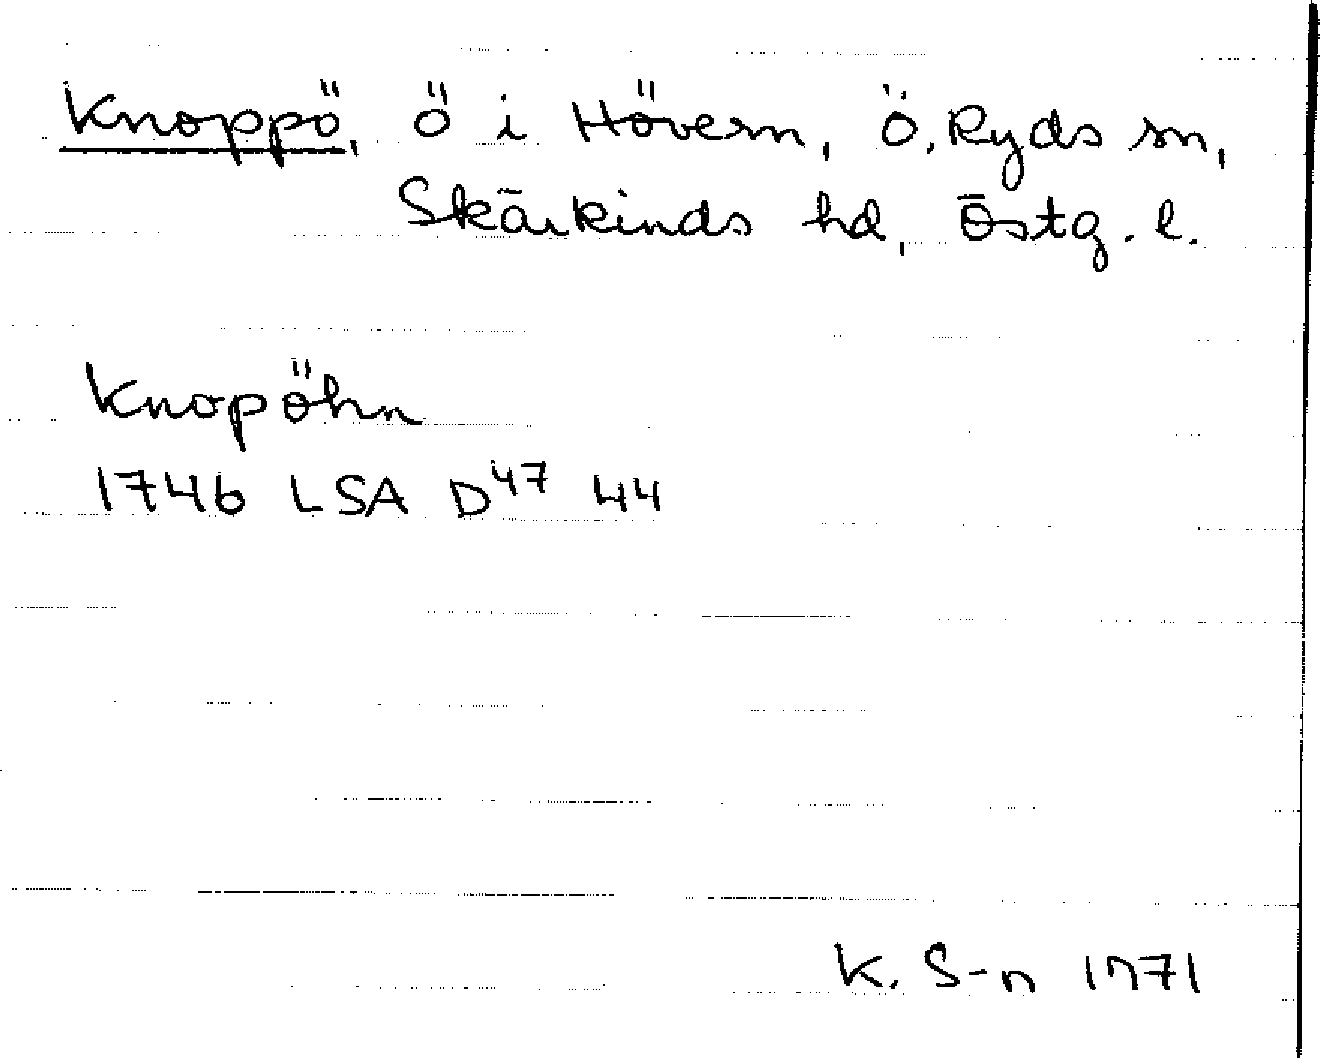 Knoppö, ö i Hövern, Ö. Ryds sn,
Skärkinds hd, Östg. l.
Knopöhn
1746 LSA D47 44
K. S-n 1971